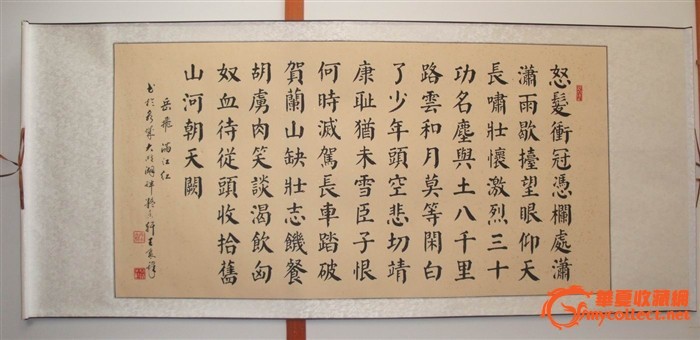 怒髮衝冠憑欄處瀟
瀟雨歇擡望眼仰天
長嘯壯懷激烈三十
功名塵與土八千里
路雲和月莫等閑白
了少年頭空悲切靖
康耻猶未雪臣子恨
何時滅駕長車踏破
賀蘭山缺壯志饑餐
胡虜肉笑談渴飲匈
奴血待從頭收拾舊
山河朝天闕
岳飛 滿江紅
華夏收藏網
mycollect.net